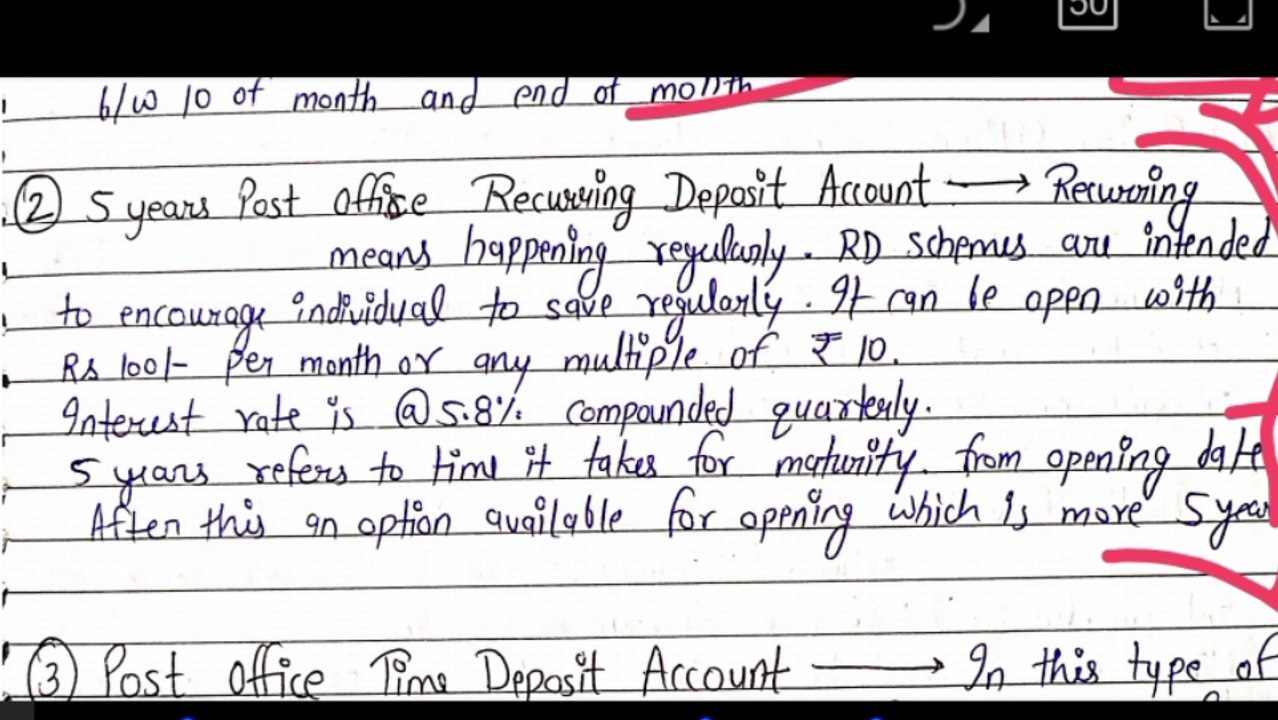 50
b/w 10 of month and end of month
② 5 years Post office Recurring Deposit Account → Recurring
means happening regularly. RD schemes are intended
to encourage individual to save regularly. It can be open with
Rs 100/- per month or any multiple of ₹ 10.
Interest rate is @5.8% compounded quarterly.
5 years refers to time it takes for maturity. from opening date
After this an option available for opening which is more 5 year
③ Post office Time Deposit Account → In this type of